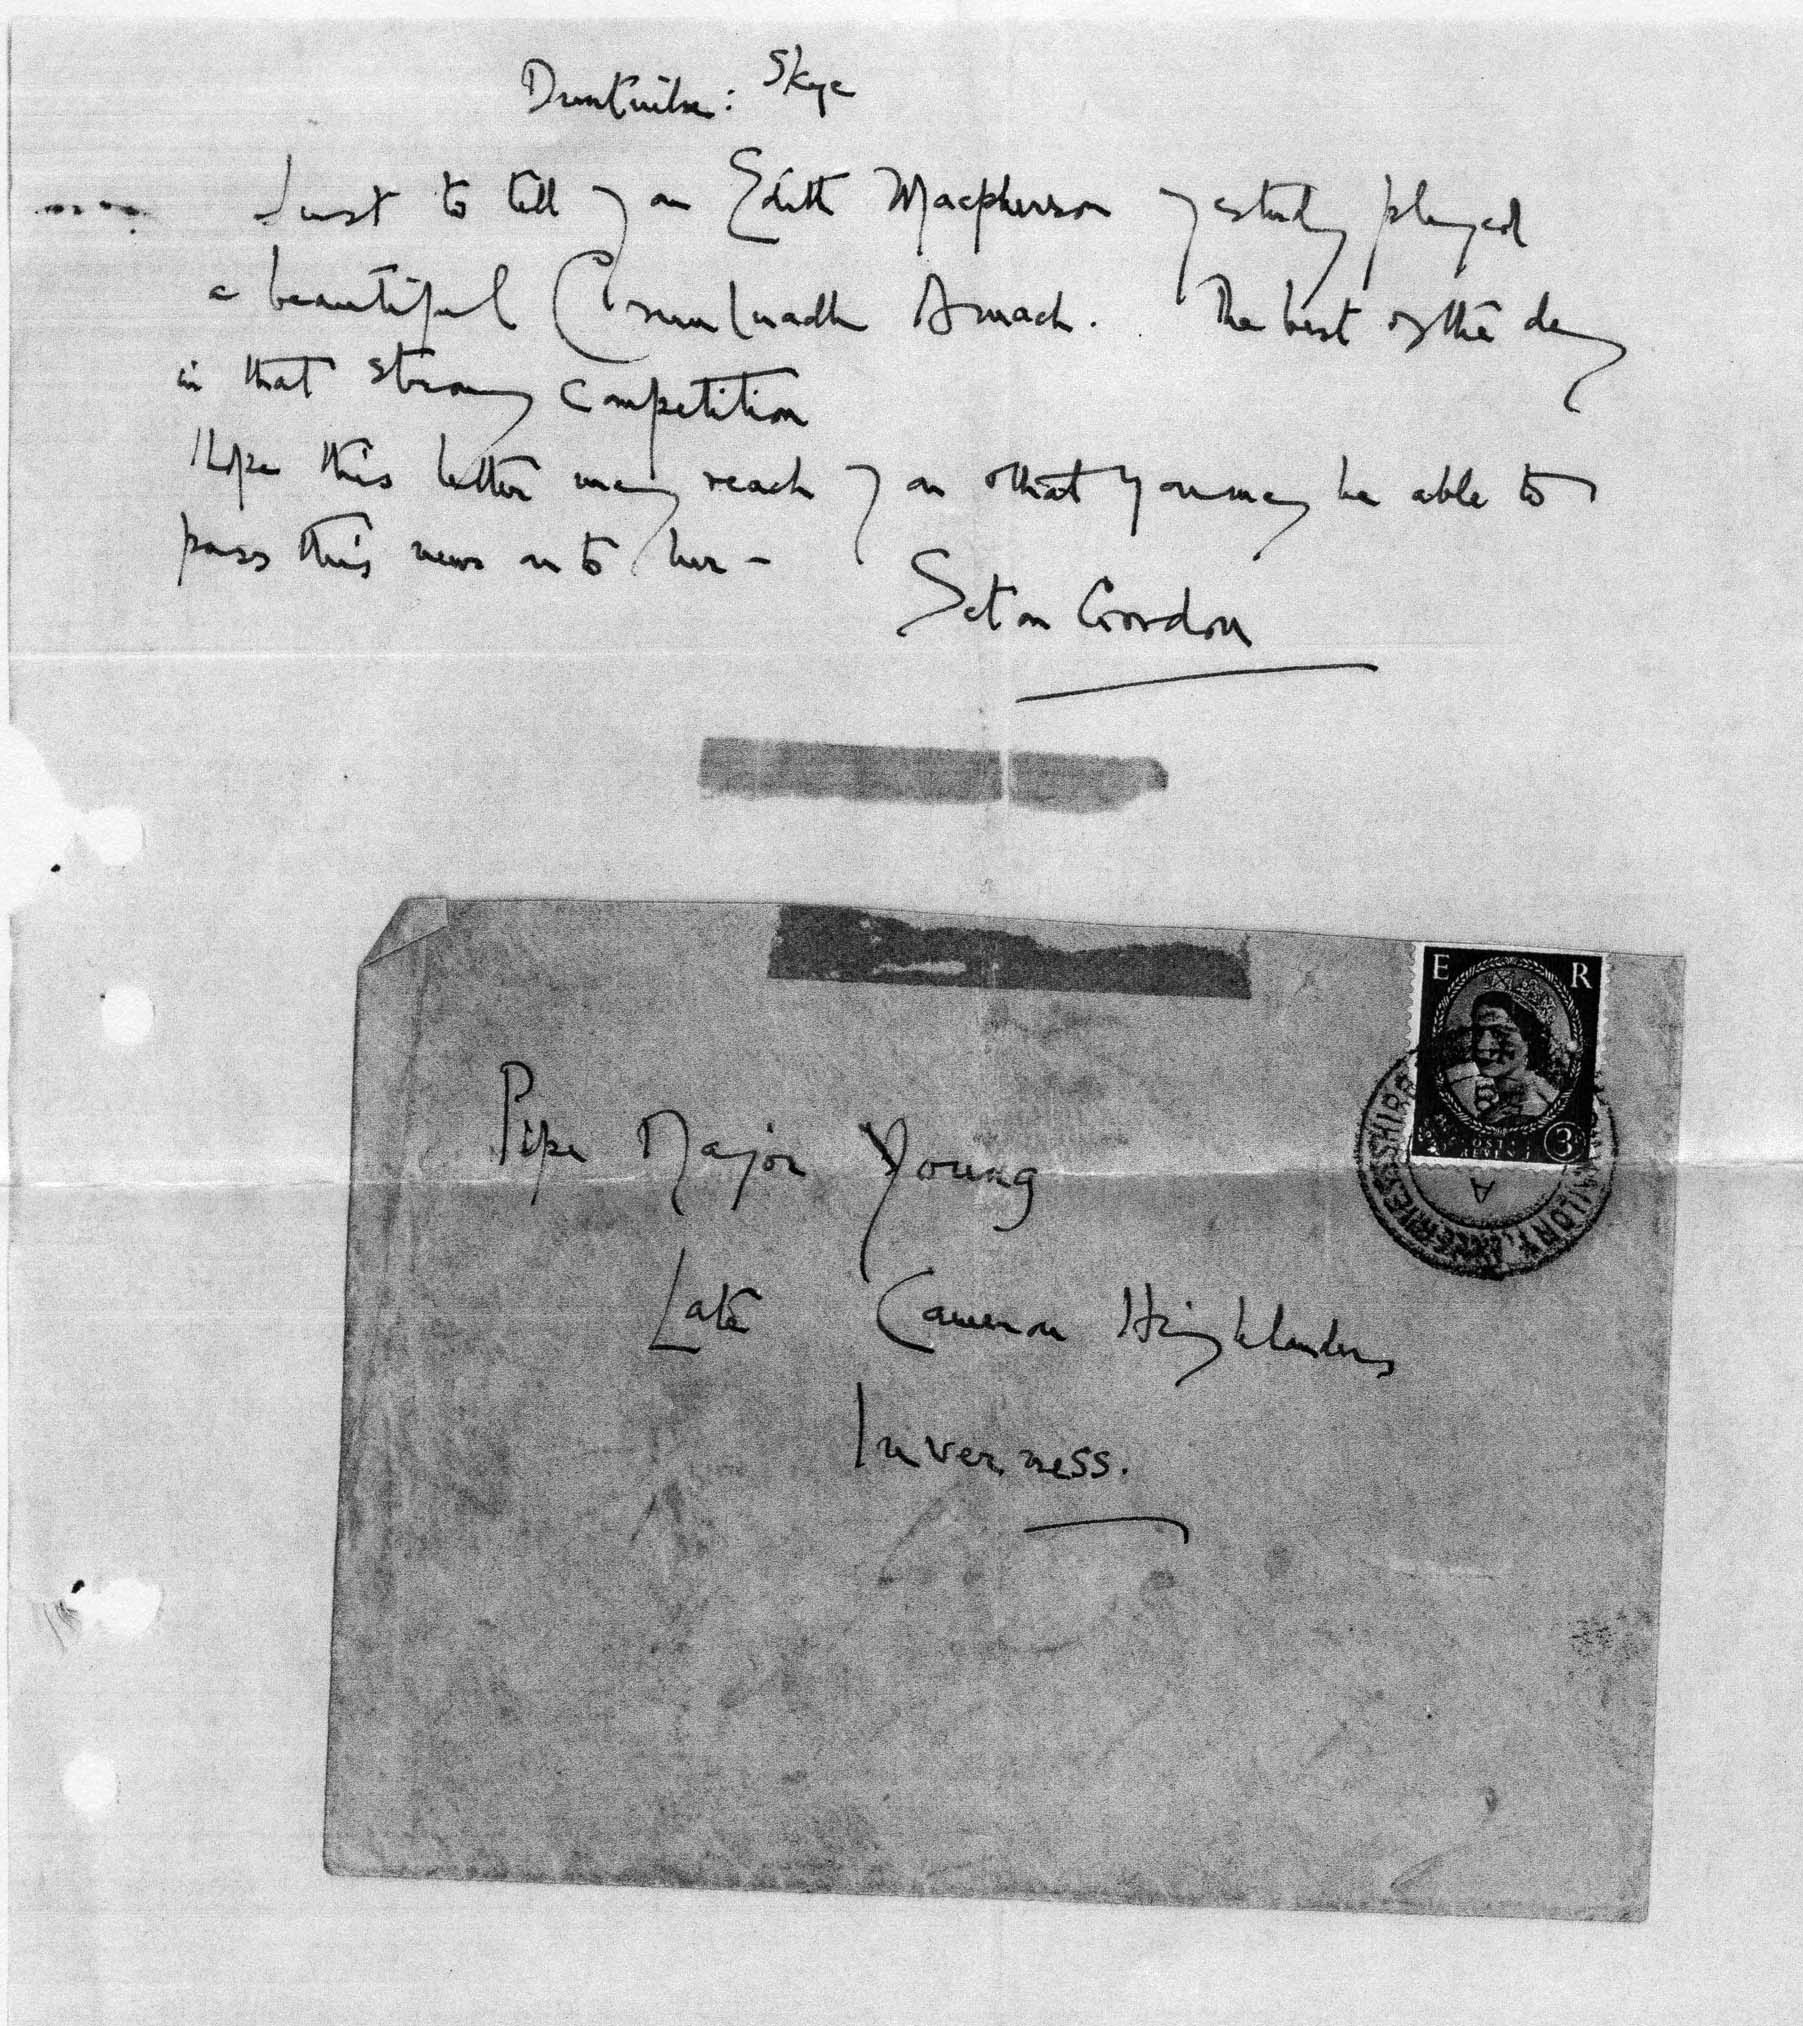 Duntuilm: Skye
Just to tell you Edith Macpherson yesterday played
a beautiful Crunluadh Amach. The best of the day
in that strong competition
Hope this letter may reach you & that you may be able to
pass this news on to her –
Seton Gordon
E R
3D
A
Pipe Major Young
Late Cameron Highlanders
Inverness.